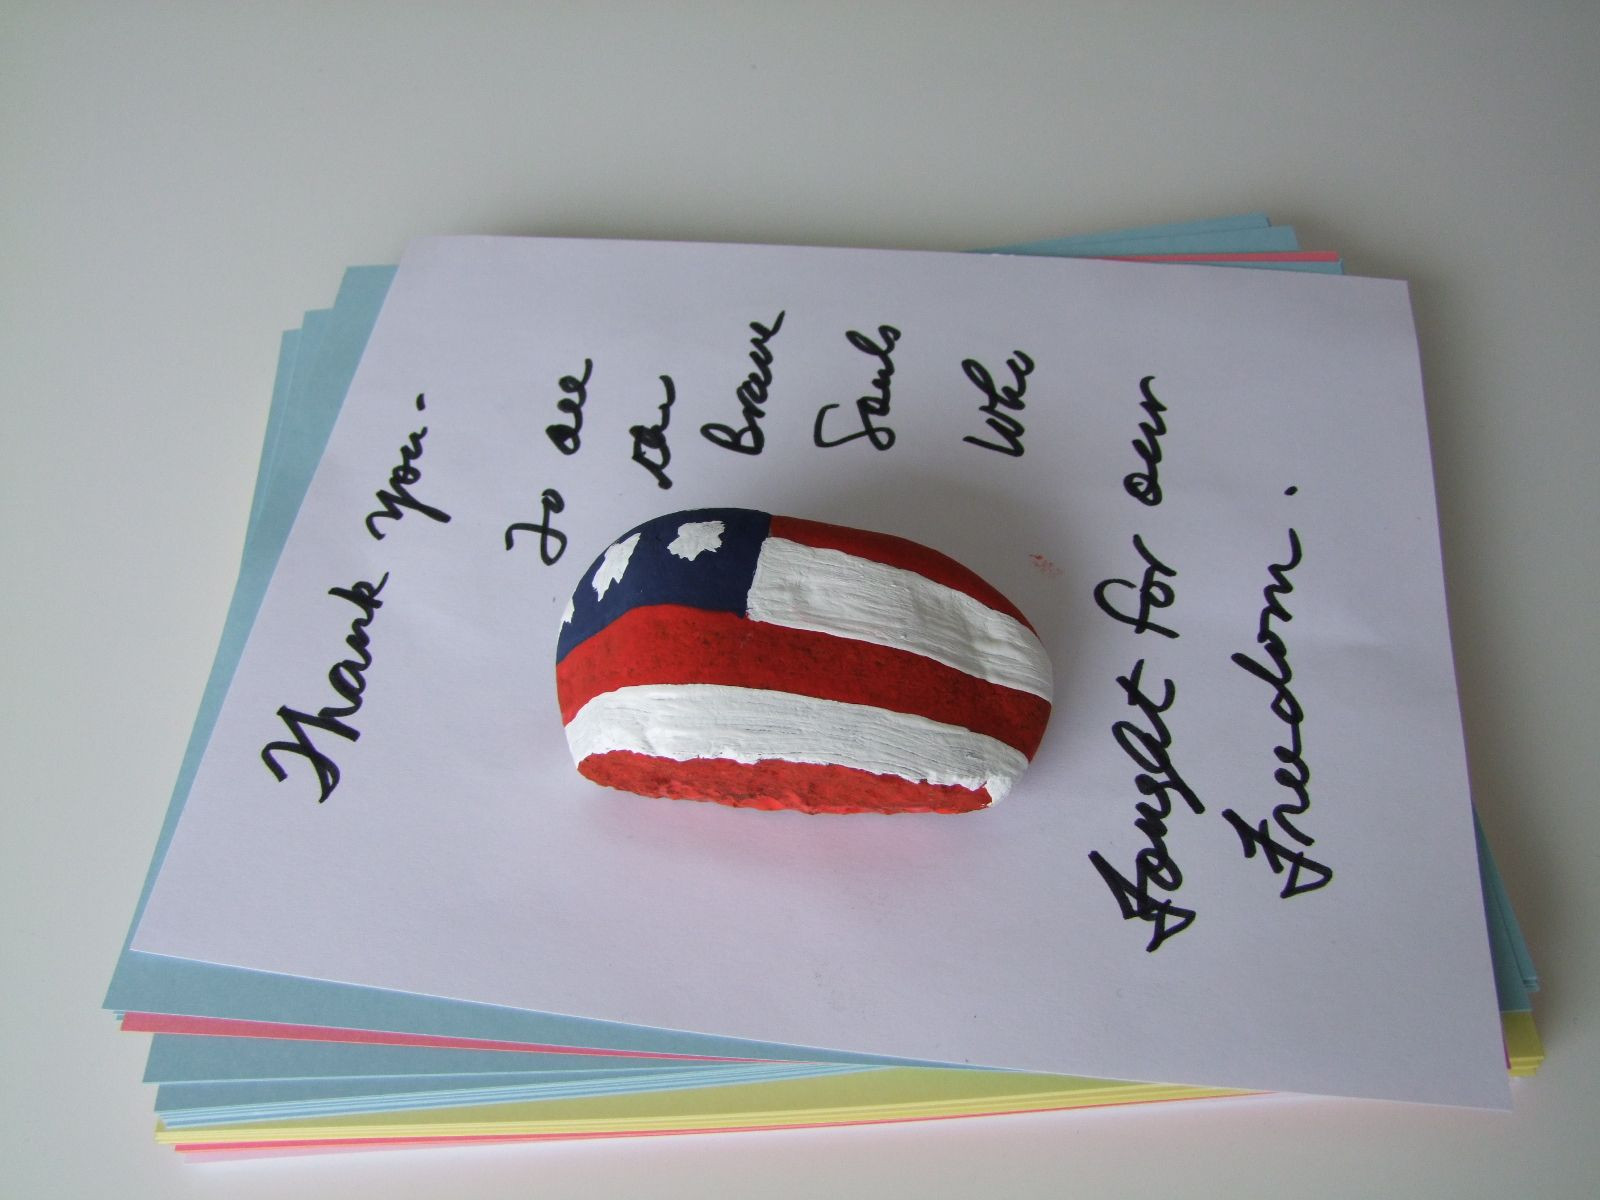 Thank you.
To all
the
Brave
Souls
Who
Fought for our
Freedom.